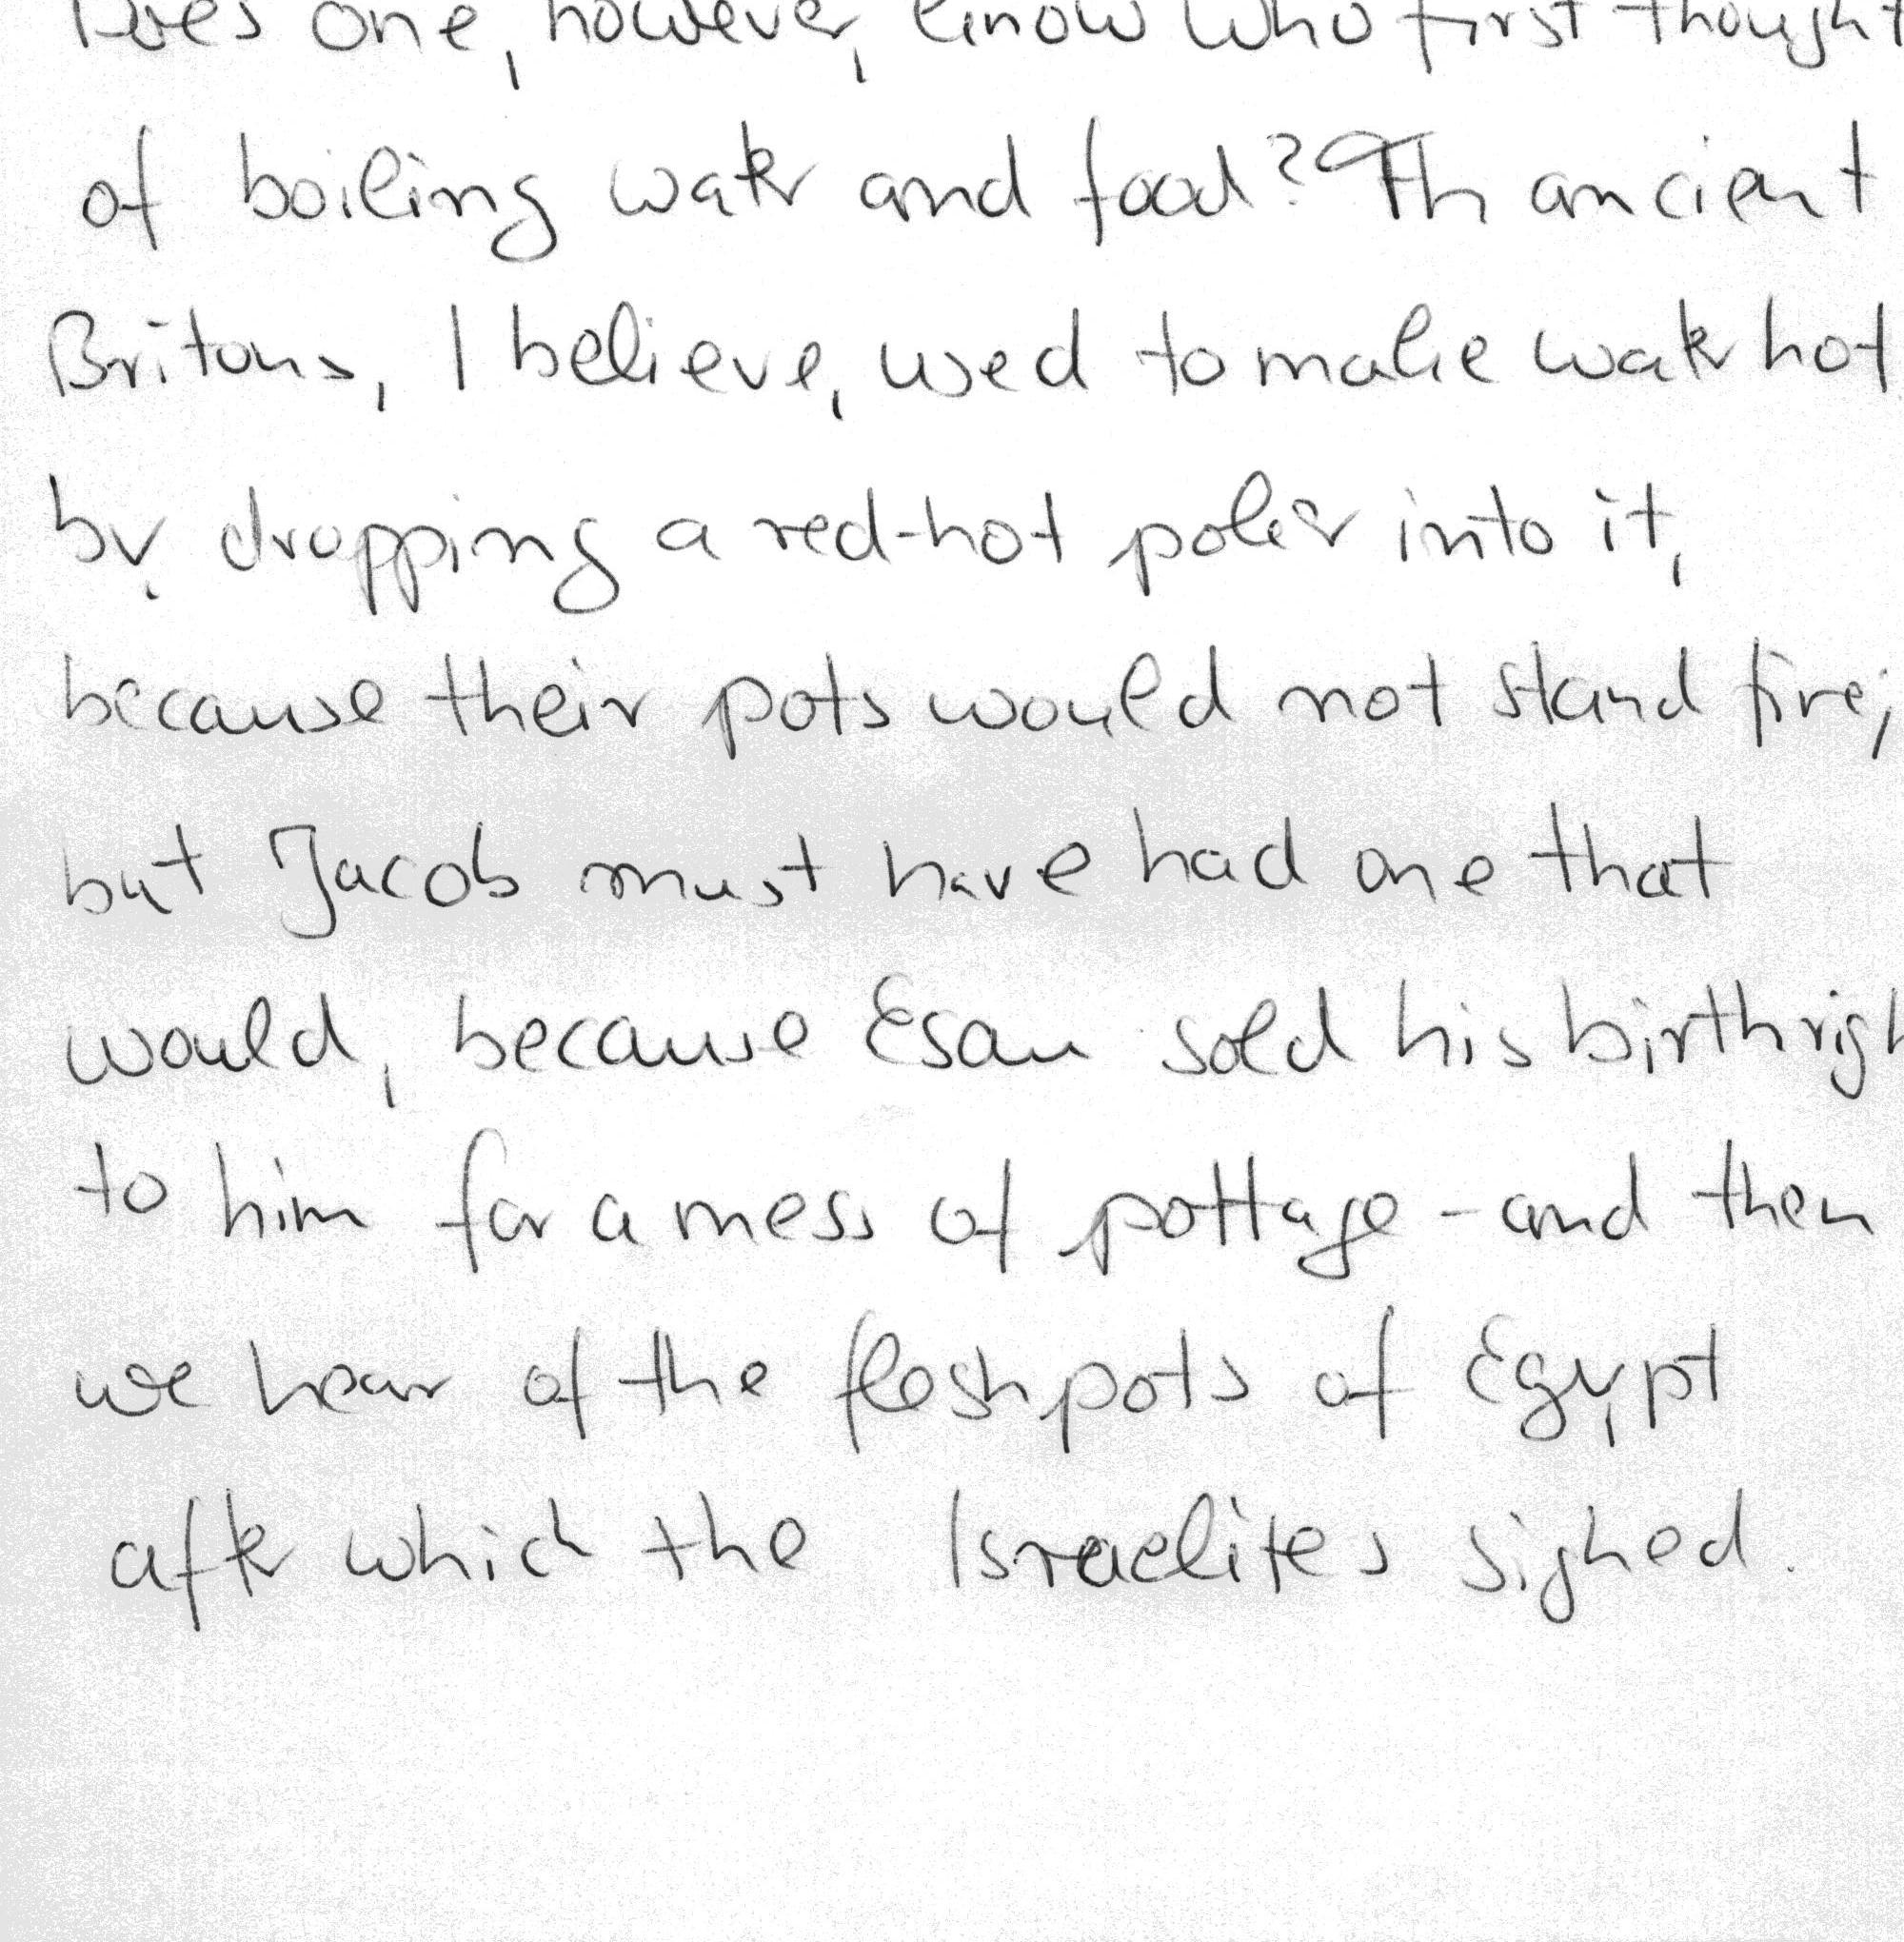 Does one, however, know who first thought
of boiling water and food? Th ancient
Britons, I believe, used to make water hot
by dropping a red-hot poker into it,
because their pots would not stand fire;
but Jacob must have had one that
would, because Esau sold his birthrigh
to him for a mess of pottage - and then
we hear of the fleshpots of Egypt
after which the Israelites sighed.